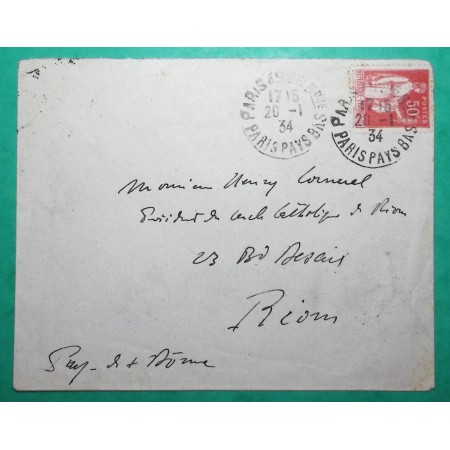 PARIS
17 15
20 -1
34
PARIS PAYS BAS
PARIS
20 -1
34
PARIS PAYS BAS
50
POSTES
Monsieur Henry
Président du Cercle Catholique de Riom
23 Bd Desaix
Riom
Puy-de-Dôme